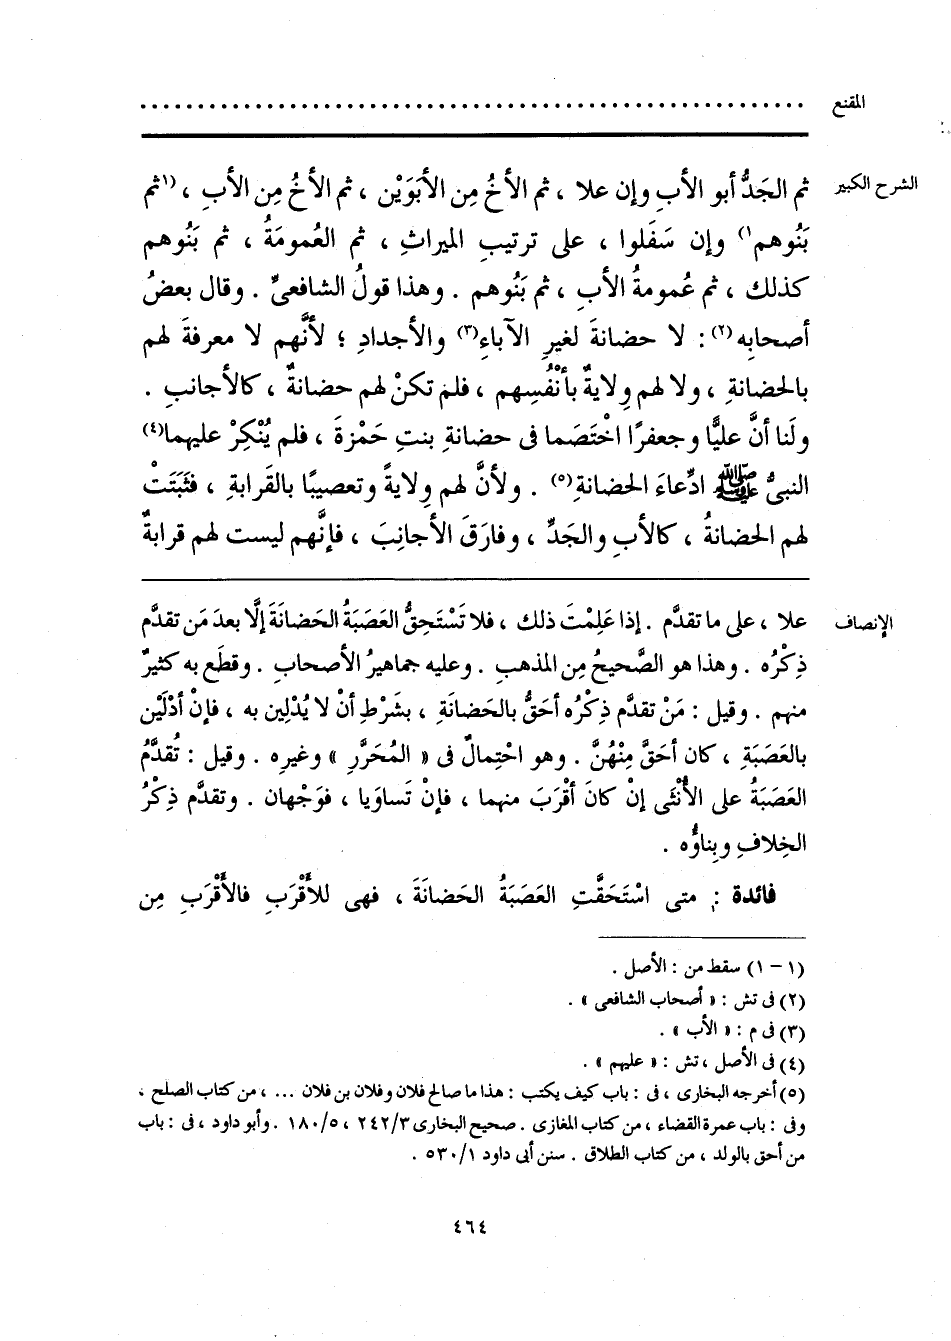 المقنع ............................................................
الشرح الكبير ثم الجَدُّ أبو الأبِ وإن علا ، ثم الأخُ مِن الأبَوَيْن ، ثم الأخُ مِن الأبِ ، (١ثم
بَنُوهم١) وإن سَفَلوا ، على ترتيبِ الميراثِ ، ثم العُمومَةُ ، ثم بَنُوهم
كذلك ، ثم عُمومةُ الأبِ ، ثم بَنُوهم . وهذا قولُ الشافعىِّ . وقال بعضُ
أصحابِه(٢) : لا حضانةَ لغيرِ الآباءِ(٣) والأجدادِ ؛ لأنَّهم لا معرفةَ لهم
بالحضانةِ ، ولا لهم وِلايةٌ بأنْفُسِهم ، فلم تكنْ لهم حضانةٌ ، كالأجانبِ .
ولَنا أنَّ عليًّا وجعفرًا اخْتَصَما فى حضانةِ بنتِ حَمْزةَ ، فلم يُنْكِرْ عليهما(٤)
النبىُّ ﷺ ادِّعاءَ الحضانةِ(٥) . ولأنَّ لهم وِلايةً وتعصيبًا بالقَرابةِ ، فثَبَتَتْ
لهم الحضانةُ ، كالأبِ والجَدِّ ، وفارَقَ الأجانِبَ ، فإنَّهم ليست لهم قرابةٌ
الإنصاف علا ، على ما تقدَّم . إذا عَلِمْتَ ذلك ، فلا تَسْتَحِقُّ العَصَبَةُ الحَضانَةَ إلَّا بعدَ مَن تقدَّم
ذِكْرُه . وهذا هو الصَّحيحُ مِن المذهبِ . وعليه جماهيرُ الأصحابِ . وقطَع به كثيرٌ
منهم . وقيل : مَنْ تقدَّم ذِكْرُه أحَقُّ بالحَضانَةِ ، بشَرْطِ أنْ لا يُدْلِين به ، فإنْ أدْلَيْن
بالعَصَبَةِ ، كان أحَقَّ مِنْهُنَّ . وهو احْتِمالٌ فى « المُحَرَّرِ » وغيرِه . وقيل : تُقدَّمُ
العَصَبَةُ على الأُنْثَى إنْ كانَ أقْرَبَ منهما ، فإنْ تَساوَيا ، فوَجْهان . وتقدَّم ذِكْرُ
الخِلافِ وبِناؤُه .
فائدة : متى اسْتَحَقَّتِ العَصَبَةُ الحَضانَةَ ، فهى للأقْرَبِ فالأقْرَبِ مِن
(١ - ١) سقط من : الأصل .
(٢) فى تش : « أصحاب الشافعى » .
(٣) فى م : « الأب » .
(٤) فى الأصل ، تش : « عليهم » .
(٥) أخرجه البخارى ، فى : باب كيف يكتب : هذا ما صالح فلان وفلان بن فلان ... ، من كتاب الصلح ،
وفى : باب عمرة القضاء ، من كتاب المغازى . صحيح البخارى ٢٤٢/٣ ، ١٨٠/٥ . وأبو داود ، فى : باب
من أحق بالولد ، من كتاب الطلاق . سنن أبى داود ٥٣٠/١ .
٤٦٤